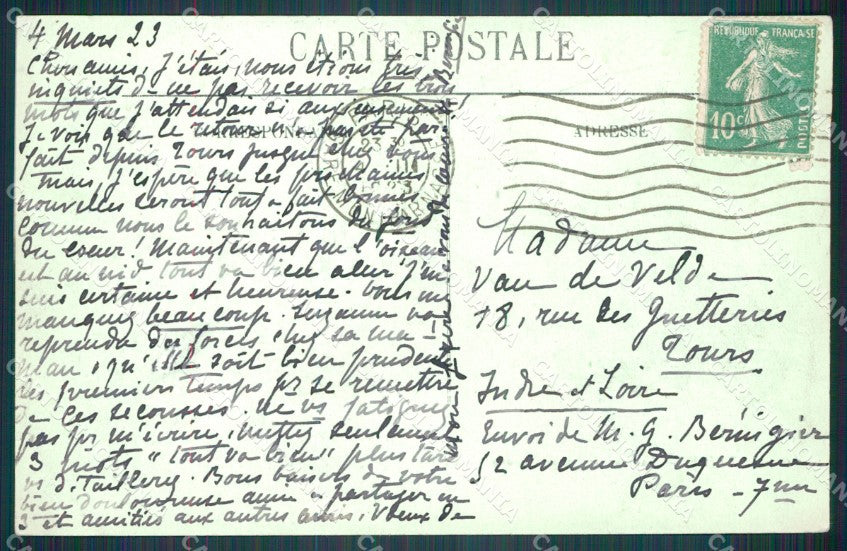 4 Mars 23
CARTE POSTALE
RÉPUBLIQUE FRANÇAISE
10c
POSTES
CORRESPONDANCE
ADRESSE
Chers amis, J'étais, nous étions très
inquiets de ne pas recevoir les bons
mots que j'attendais si anxieusement!
Je vois que le retour s'est passé par
fait depuis Tours jusque chez vous
Mais, j'espère que les prochaines
nouvelles seront tout à fait bonnes
comme nous le souhaitons du fond
du coeur! Maintenant que l'oiseau
est au nid tout va bien aller j'en
suis certaine et heureuse. Vous me
manquez beaucoup. Suzanne va
reprendre des forces chez sa ma-
man, qu'elle soit bien prudente
les premiers temps pr se remettre
de ces secousses. Ne vs fatiguez
pas pr m'écrire, mettez seulement
3 mots "tout va bien" plus tard
vs détaillerez. Bons baisers de votre
bien douloureuse amie à partager en
3 et amitiés aux autres amis. Voeux de
Madame
Van de Velde
78, rue des Guetteries
Tours
Indre et Loire
Envoi de M. G. Béringier
52 avenue Duquesne
Paris - 7me
CARTOLINOMANIA